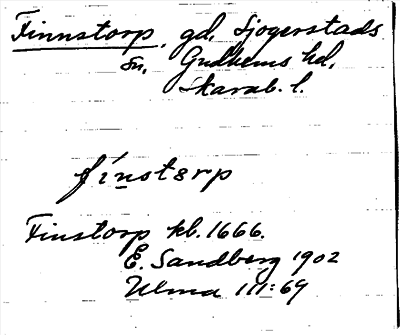 Finnstorp, gd, Sjogerstads
sn, Gudhems hd,
Skarab. l.
fínstərp
Finstorp kb. 1666.
E. Sandberg 1902
Ulma 111:69